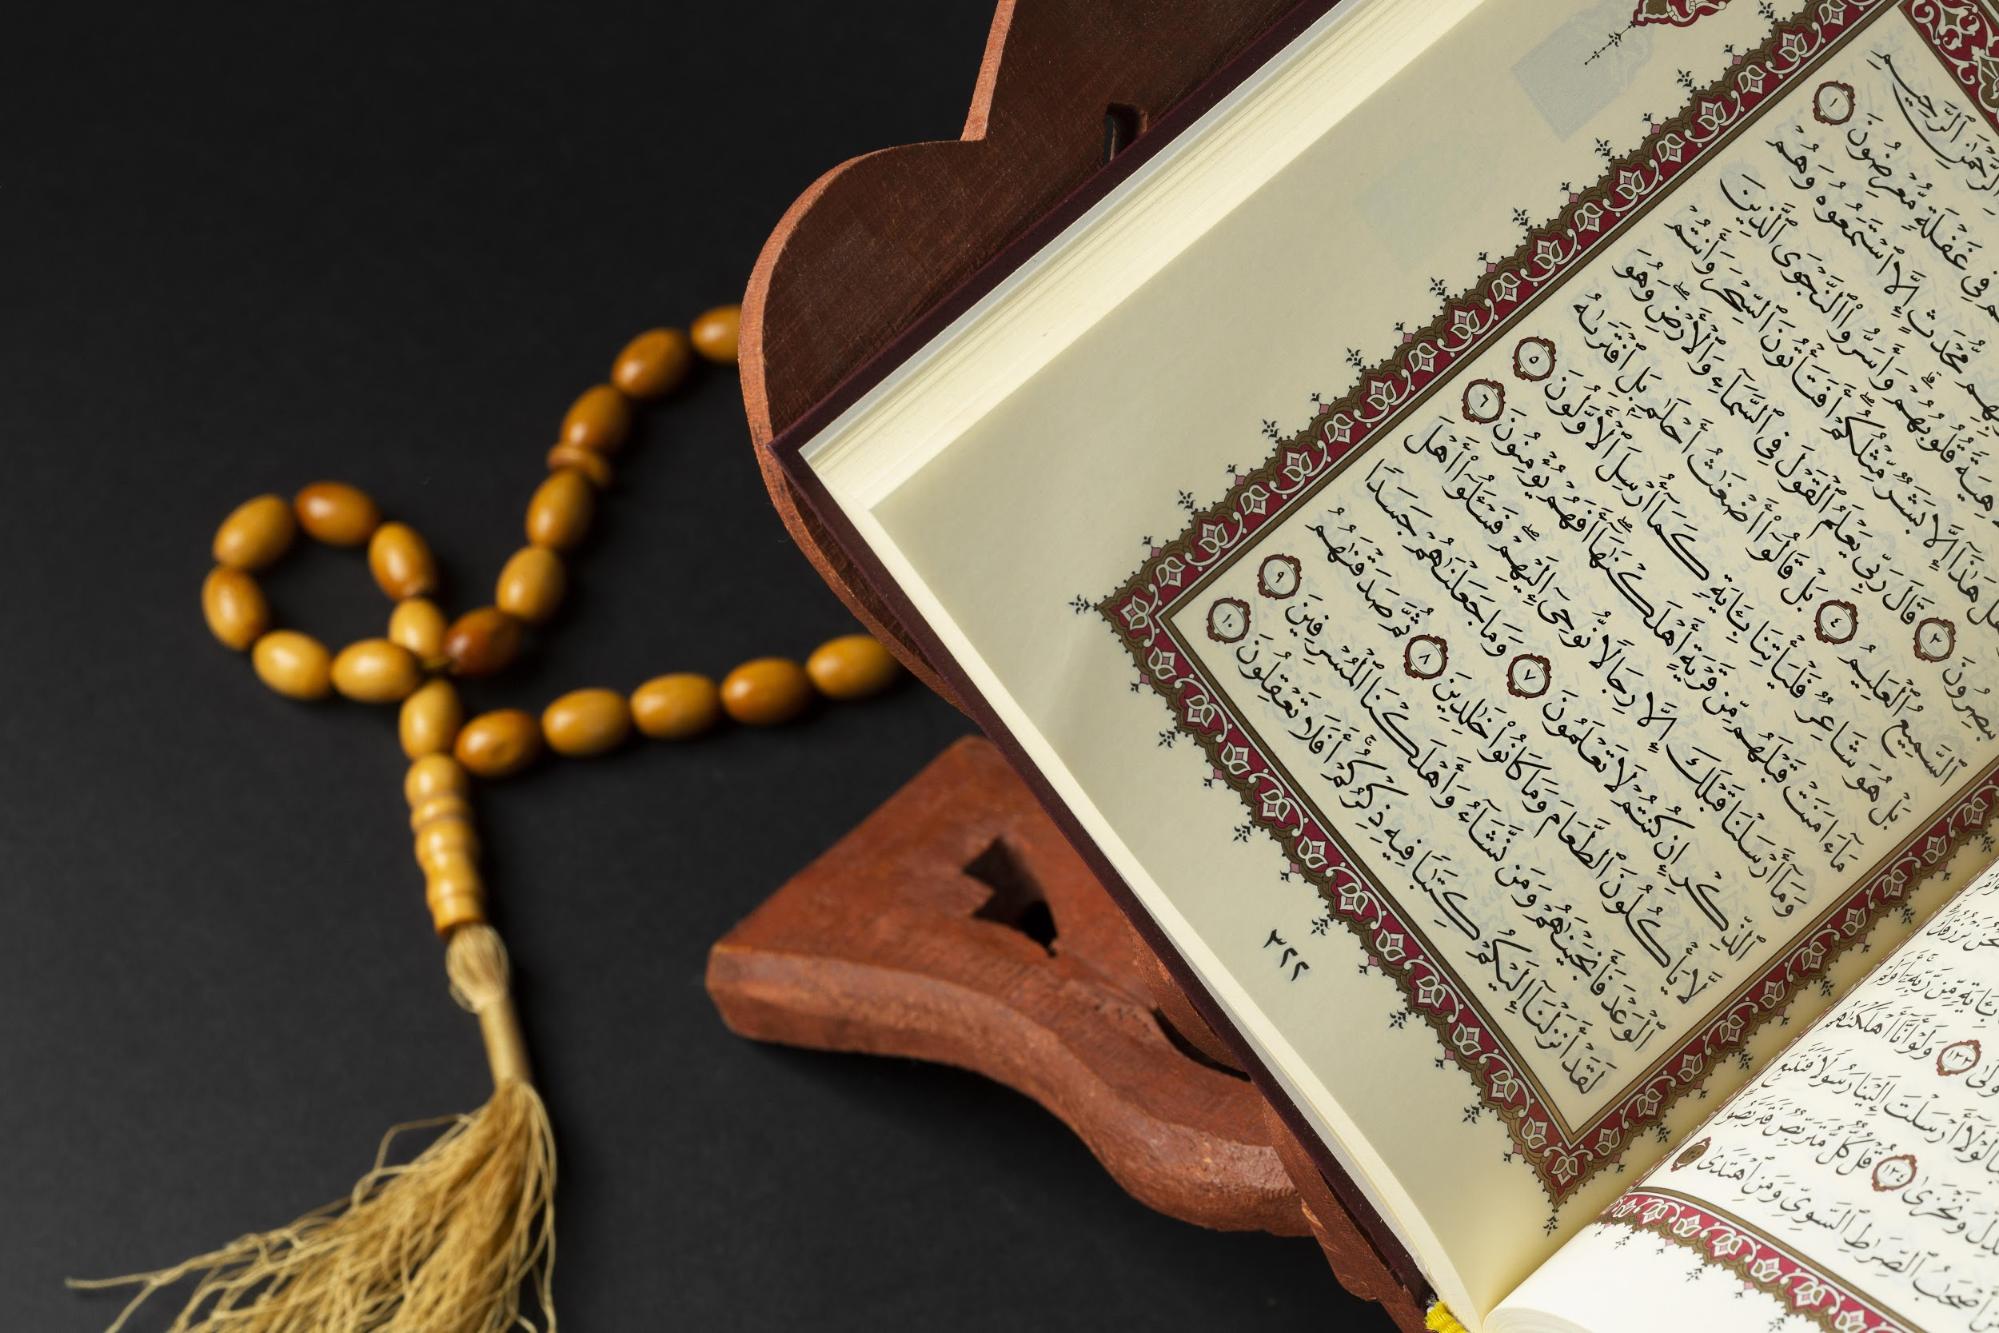 نَّحۡنُ نَرۡزُقُكَۗ
بِـَٔايَةٖ مِّن رَّبِّهِۦٓۚ أَوَلَمۡ
١٣٣ وَلَوۡ أَنَّآ أَهۡلَكۡنَٰهُم
لَوۡلَآ أَرۡسَلۡتَ إِلَيۡنَا رَسُولٗا فَنَتَّبِعَ
وَنَخۡزَىٰ ١٣٤ قُلۡ كُلّٞ مُّتَرَبِّصٞ فَتَرَبَّصُواْۖ
أَصۡحَٰبُ ٱلصِّرَٰطِ ٱلسَّوِيِّ وَمَنِ ٱهۡتَدَىٰ ١٣٥
ٱلرَّحۡمَٰنِ ٱلرَّحِيمِ
فِي غَفۡلَةٖ مُّعۡرِضُونَ ١
مُّحۡدَثٍ إِلَّا ٱسۡتَمَعُوهُ وَهُمۡ
لَاهِيَةٗ قُلُوبُهُمۡۗ وَأَسَرُّواْ ٱلنَّجۡوَى ٱلَّذِينَ
هَلۡ هَٰذَآ إِلَّا بَشَرٞ مِّثۡلُكُمۡۖ أَفَتَأۡتُونَ ٱلسِّحۡرَ وَأَنتُمۡ
تُبۡصِرُونَ ٣ قَالَ رَبِّي يَعۡلَمُ ٱلۡقَوۡلَ فِي ٱلسَّمَآءِ وَٱلۡأَرۡضِۖ وَهُوَ
ٱلسَّمِيعُ ٱلۡعَلِيمُ ٤ بَلۡ قَالُوٓاْ أَضۡغَٰثُ أَحۡلَٰمِۭ بَلِ ٱفۡتَرَىٰهُ
بَلۡ هُوَ شَاعِرٞ فَلۡيَأۡتِنَا بِـَٔايَةٖ كَمَآ أُرۡسِلَ ٱلۡأَوَّلُونَ ٥
مَآ ءَامَنَتۡ قَبۡلَهُم مِّن قَرۡيَةٍ أَهۡلَكۡنَٰهَآۖ أَفَهُمۡ يُؤۡمِنُونَ ٦
وَمَآ أَرۡسَلۡنَا قَبۡلَكَ إِلَّا رِجَالٗا نُّوحِيٓ إِلَيۡهِمۡۖ فَسۡـَٔلُوٓاْ أَهۡلَ
ٱلذِّكۡرِ إِن كُنتُمۡ لَا تَعۡلَمُونَ ٧ وَمَا جَعَلۡنَٰهُمۡ جَسَدٗا
لَّا يَأۡكُلُونَ ٱلطَّعَامَ وَمَا كَانُواْ خَٰلِدِينَ ٨ ثُمَّ صَدَقۡنَٰهُمُ
ٱلۡوَعۡدَ فَأَنجَيۡنَٰهُمۡ وَمَن نَّشَآءُ وَأَهۡلَكۡنَا ٱلۡمُسۡرِفِينَ ٩
لَقَدۡ أَنزَلۡنَآ إِلَيۡكُمۡ كِتَٰبٗا فِيهِ ذِكۡرُكُمۡۚ أَفَلَا تَعۡقِلُونَ ١٠
٣٢٢